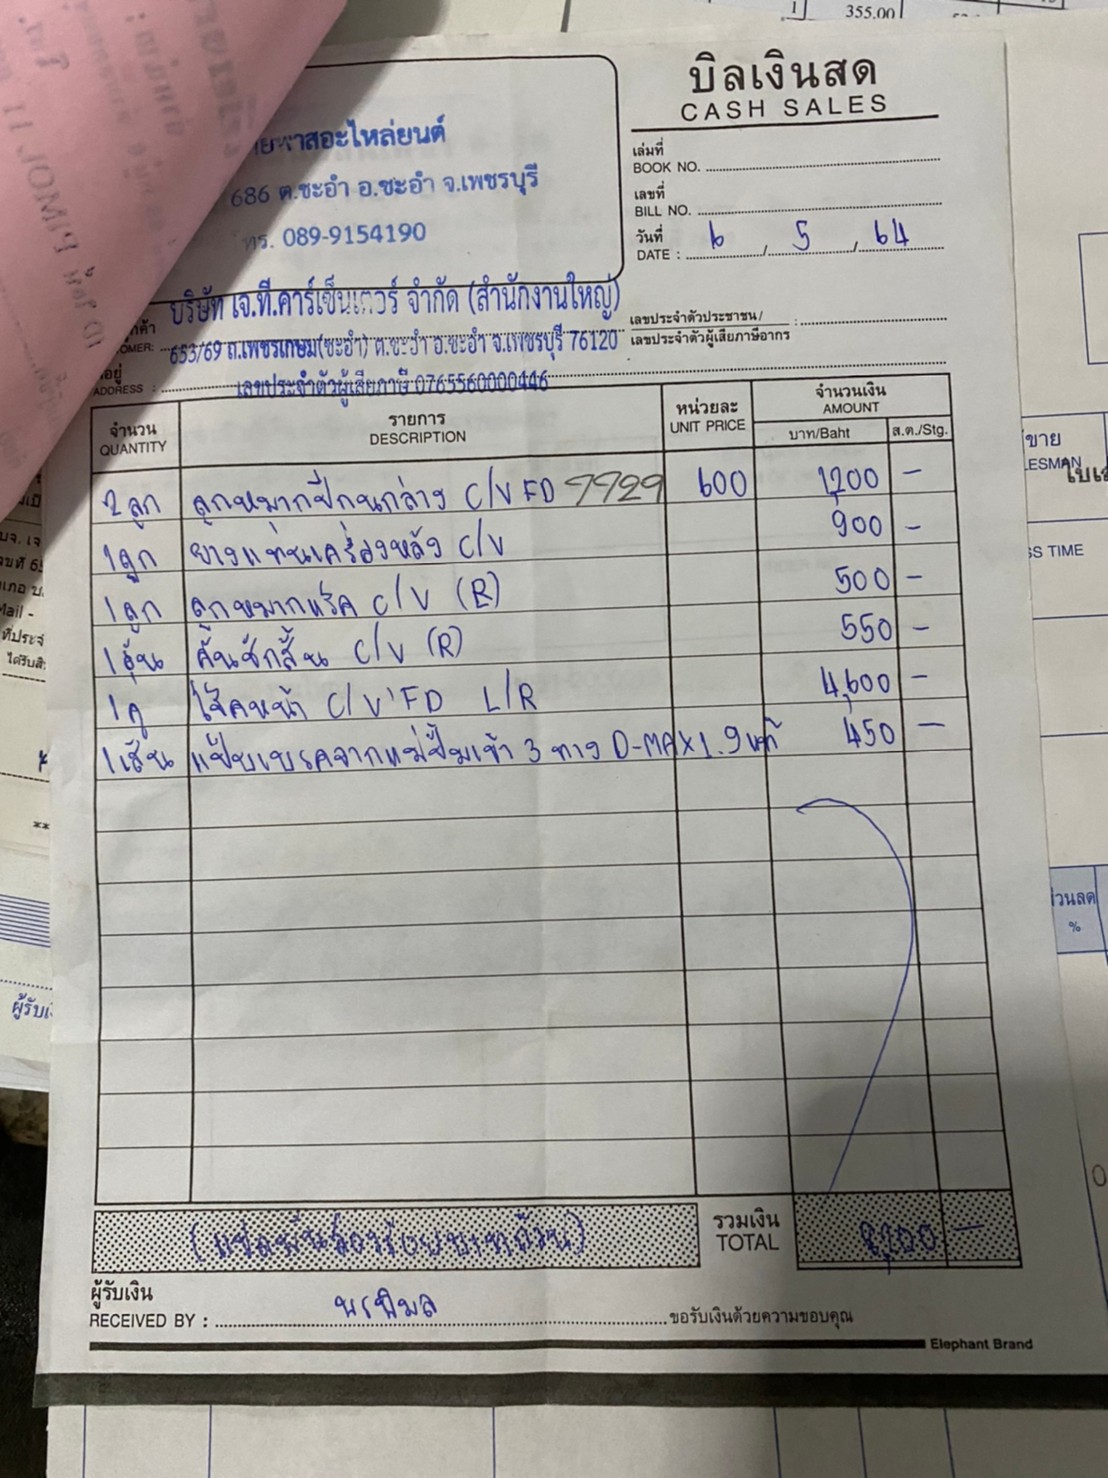 1 355.00
บิลเงินสด
CASH SALES
สอะไหล่ยนต์
686 ต.ชะอำ อ.ชะอำ จ.เพชรบุรี
โทร. 089-9154190
เล่มที่
BOOK NO.
เลขที่
BILL NO.
วันที่
DATE : 6 / 5 / 64
บริษัท เจ.ที.คาร์เซ็นเตอร์ จำกัด (สำนักงานใหญ่)
653/69 ถ.เพชรเกษม(ชะอำ) ต.ชะอำ อ.ชะอำ จ.เพชรบุรี 76120
เลขประจำตัวผู้เสียภาษี 0765560000446
เลขประจำตัวประชาชน/ :
เลขประจำตัวผู้เสียภาษีอากร
ADDRESS :
จำนวน รายการ หน่วยละ จำนวนเงิน
QUANTITY DESCRIPTION UNIT PRICE AMOUNT
บาท/Baht ส.ต./Stg.
2 ลูก ลูกหมากปีกนกล่าง C/V FD 7729 600 1,200 -
1 ลูก ยางแท่นเครื่องหลัง C/V 900 -
1 ลูก ลูกหมากแร็ค C/V (R) 500 -
1 อัน คันชักสั้น C/V (R) 550 -
1 คู่ โช๊คหน้า C/V'FD L/R 4,600 -
1 เส้น แป๊บเบรคจากแม่ปั๊มเข้า 3 ทาง D-MAX 1.9 แท้ 450 -
(แปดพันสองร้อยบาทถ้วน) รวมเงิน 8,200 -
TOTAL
ผู้รับเงิน
RECEIVED BY : นรพิมล ขอรับเงินด้วยความขอบคุณ
Elephant Brand
ขาย
LESMAN
SS TIME
ส่วนลด
%